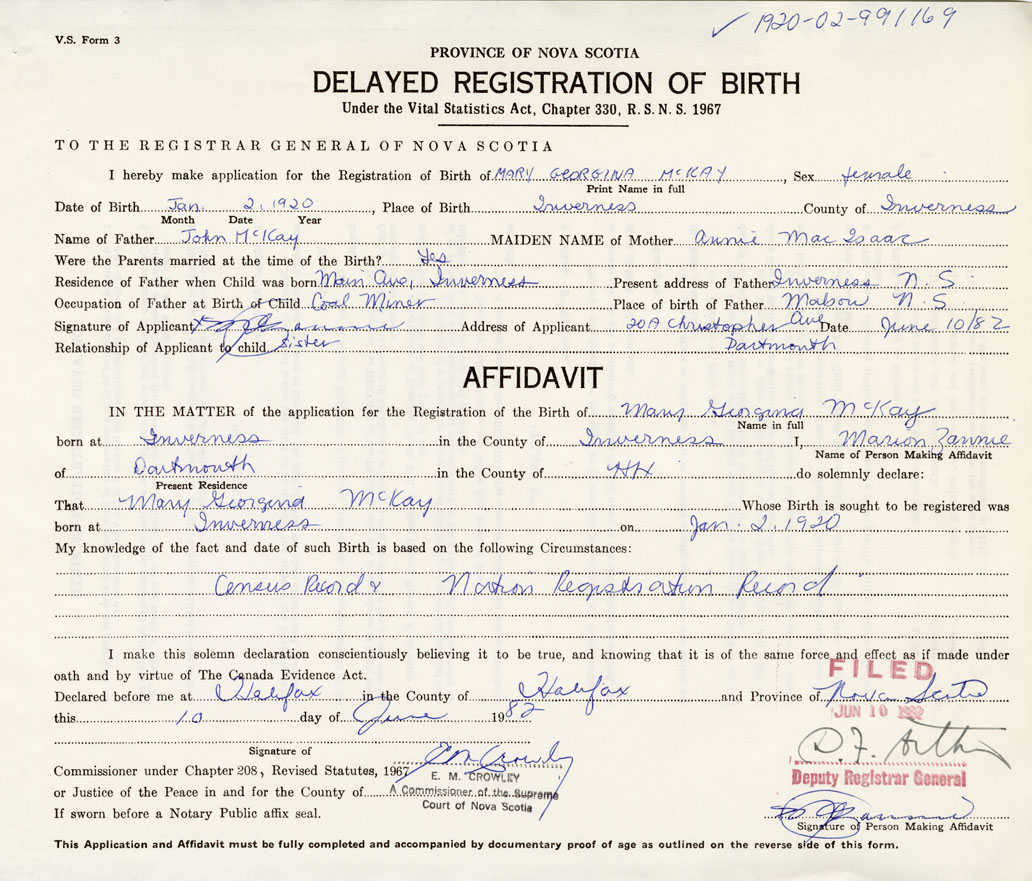 ✓ 1920-02-991169
V.S. Form 3
PROVINCE OF NOVA SCOTIA
DELAYED REGISTRATION OF BIRTH
Under the Vital Statistics Act, Chapter 330, R. S. N. S. 1967
TO THE REGISTRAR GENERAL OF NOVA SCOTIA
I hereby make application for the Registration of Birth of MARY GEORGINA McKAY, Sex female
Print Name in full
Date of Birth Jan. 2, 1920, Place of Birth Inverness County of Inverness
Month Date Year
Name of Father John McKay MAIDEN NAME of Mother Annie Mac Isaac
Were the Parents married at the time of the Birth? Yes
Residence of Father when Child was born Main Ave, Inverness Present address of Father Inverness N. S.
Occupation of Father at Birth of Child Coal Miner Place of birth of Father Mabou N. S.
Signature of Applicant Zannie Address of Applicant 20A Christopher Ave Date June 10/82
Relationship of Applicant to child Sister Dartmouth
AFFIDAVIT
IN THE MATTER of the application for the Registration of the Birth of Mary Georgina McKay
Name in full
born at Inverness in the County of Inverness I, Marion Zannie
Name of Person Making Affidavit
of Dartmouth in the County of HX do solemnly declare:
Present Residence
That Mary Georgina McKay Whose Birth is sought to be registered was
born at Inverness on Jan. 2, 1920
My knowledge of the fact and date of such Birth is based on the following Circumstances:
Census Record & Nation Registration Record
I make this solemn declaration conscientiously believing it to be true, and knowing that it is of the same force and effect as if made under
oath and by virtue of The Canada Evidence Act.
FILED
Declared before me at Halifax in the County of Halifax and Province of Nova Scotia
this 10 day of June 1982
JUN 10 1982
Signature of
E M Crowley
D. F.
Commissioner under Chapter 208, Revised Statutes, 1967
E. M. CROWLEY
Deputy Registrar General
or Justice of the Peace in and for the County of
A Commissioner of the Supreme
Court of Nova Scotia
If sworn before a Notary Public affix seal.
Zannie
Signature of Person Making Affidavit
This Application and Affidavit must be fully completed and accompanied by documentary proof of age as outlined on the reverse side of this form.